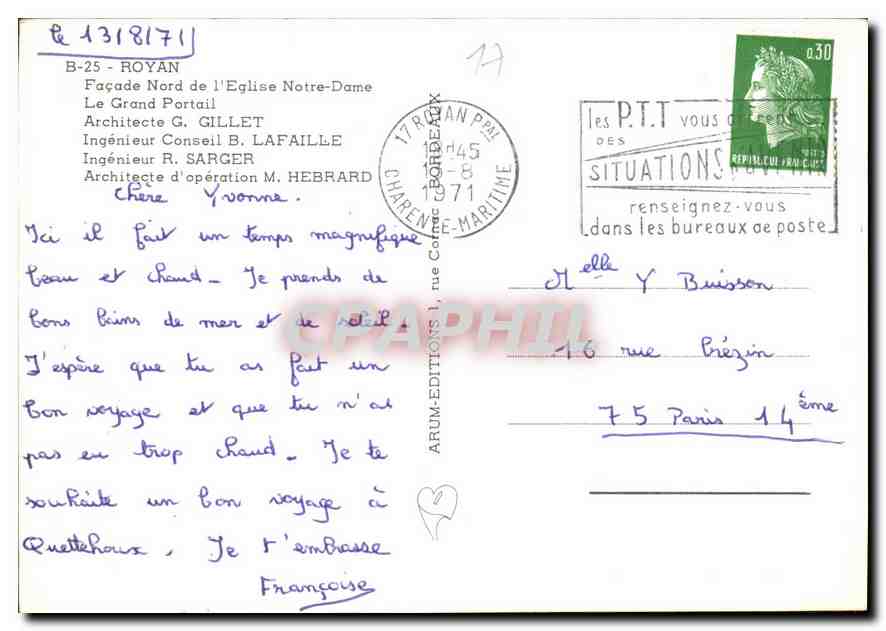 le 13/8/71
B-25 - ROYAN
Façade Nord de l'Eglise Notre-Dame
Le Grand Portail
Architecte G. GILLET
Ingénieur Conseil B. LAFAILLE
Ingénieur R. SARGER
Architecte d'opération M. HEBRARD
chère Yvonne.
Ici il fait un temps magnifique
beau et chaud - Je prends de
bons bains de mer et de soleil.
J'espère que tu as fait un
bon voyage et que tu n'as
pas eu trop chaud - Je te
souhaite un bon voyage à
Quettehoux. Je t'embrasse
Françoise
17
ARUM-EDITIONS 1, rue BORDEAUX
17 ROYAN PPAL
45
-8
1971
CHARENTE-MARITIME
les P.T.T vous
DES
SITUATIONS
renseignez-vous
dans les bureaux de poste
0,30
REPUBLIQUE FRANÇAISE
Melle Y Buisson
16 rue Crézin
75 Paris 14ème
CPAPHIL